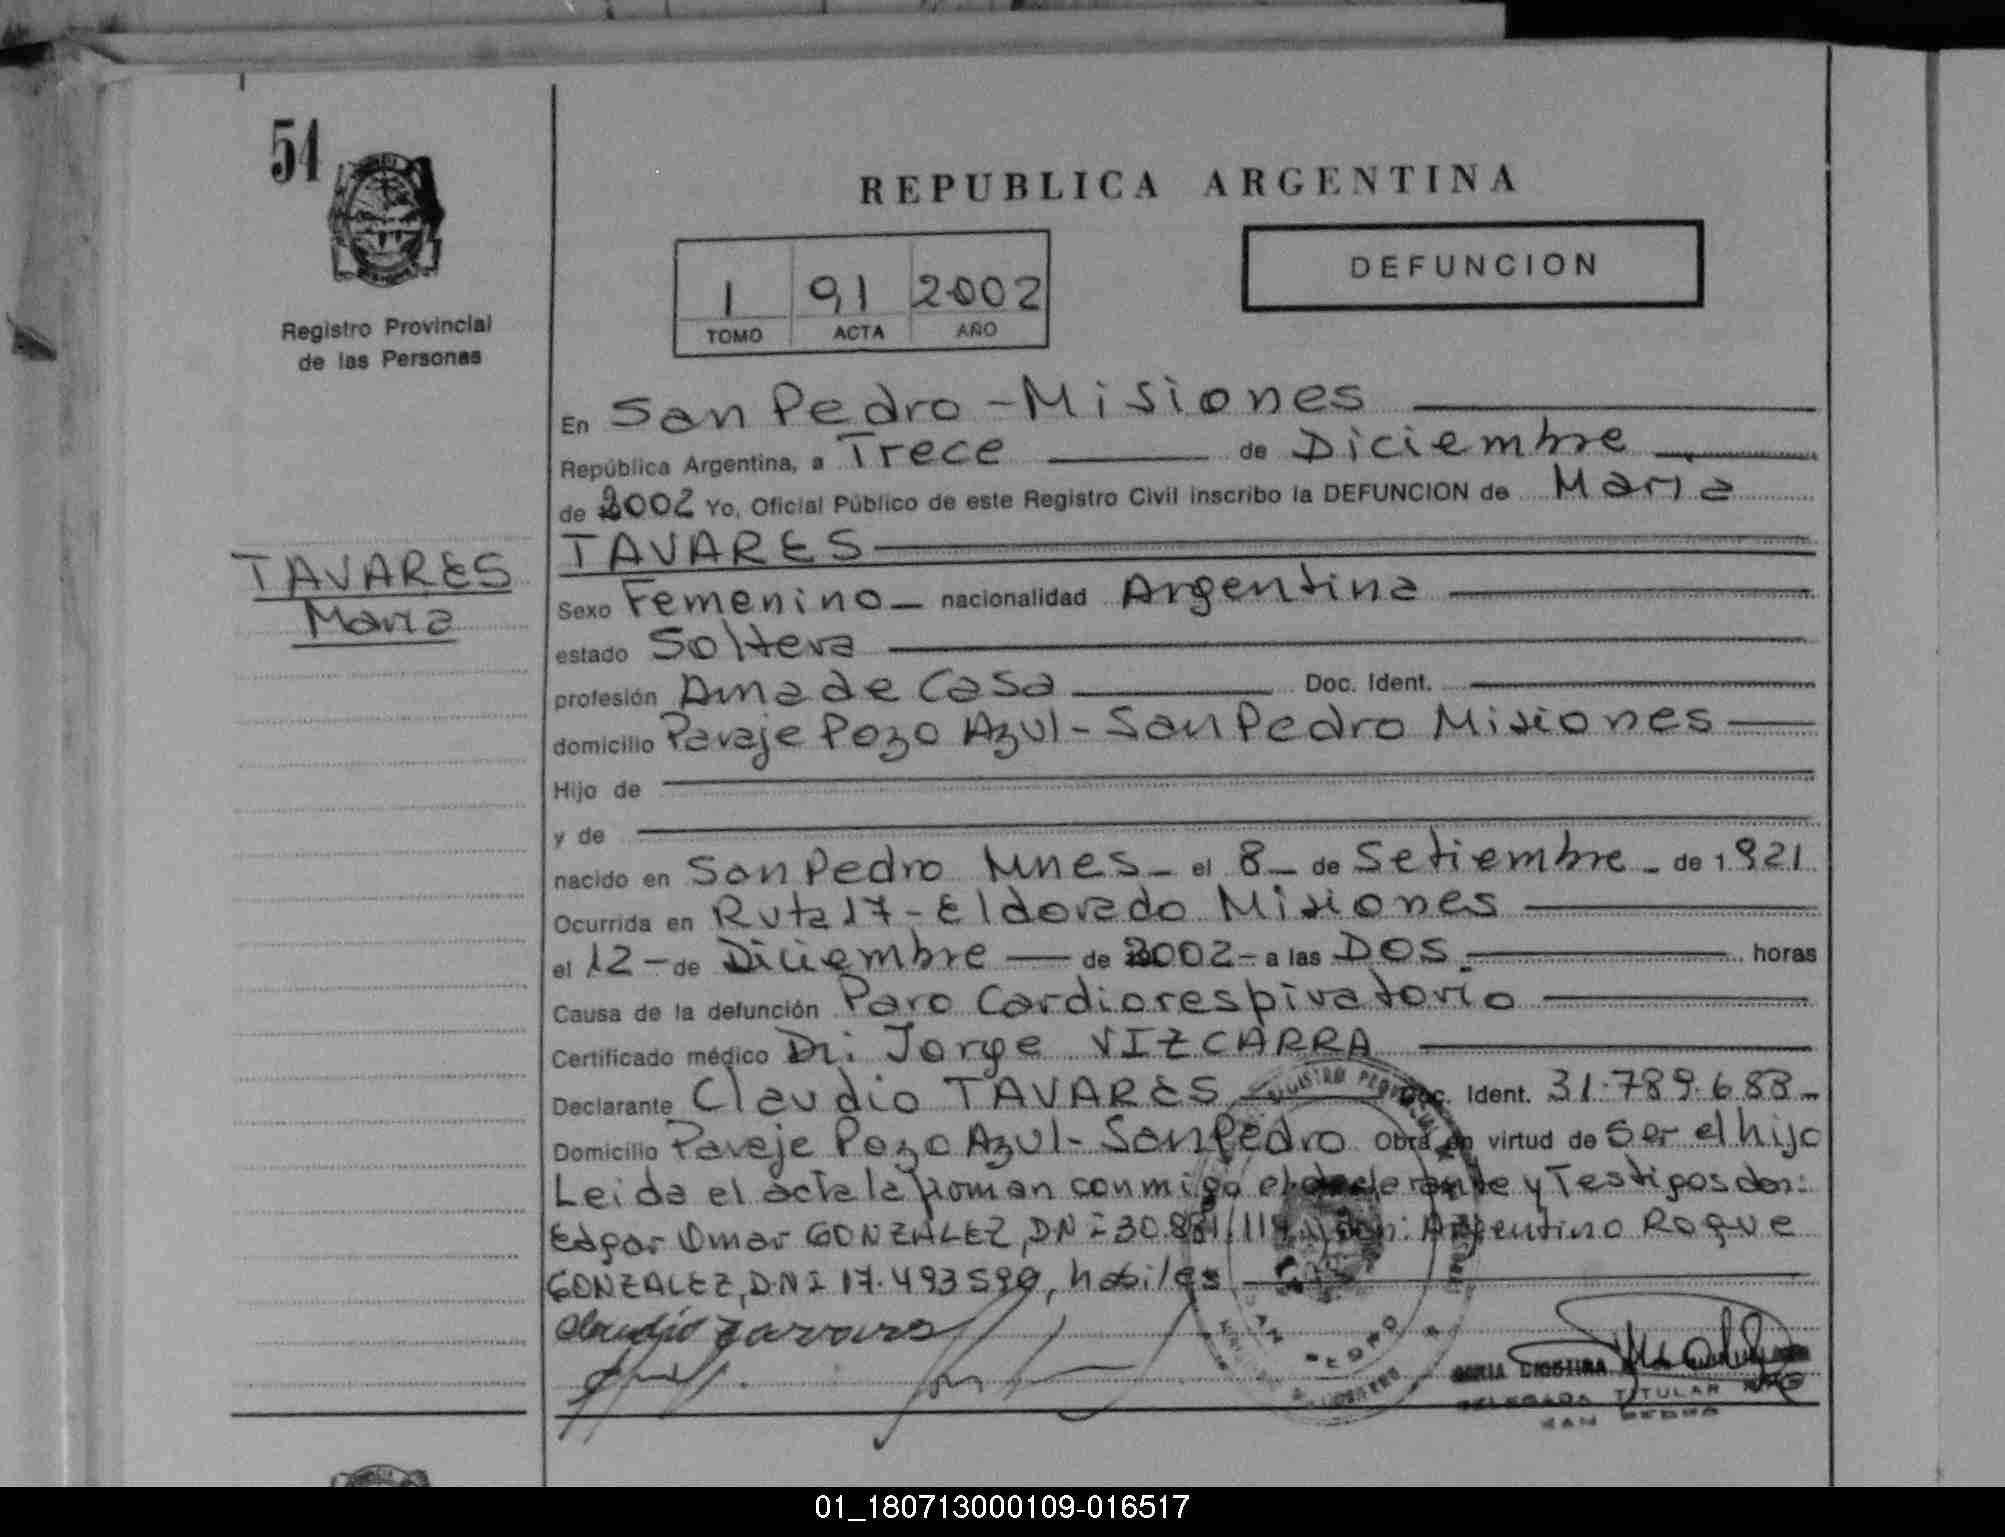 51
Registro Provincial
de las Personas
REPUBLICA ARGENTINA
1 91 2002
TOMO ACTA AÑO
DEFUNCION
En San Pedro - Misiones
República Argentina, a Trece de Diciembre
de 2002 Yo, Oficial Público de este Registro Civil inscribo la DEFUNCION de Maria
TAVARES
TAVARES
Maria
Sexo Femenino - nacionalidad Argentina
estado Soltera
profesión Ama de Casa Doc. Ident.
domicilio Paraje Pozo Azul - San Pedro Misiones
Hijo de
y de
nacido en San Pedro Mnes - el 8 - de Setiembre - de 1921
Ocurrida en Ruta 17 - Eldorado Misiones
el 12 - de Diciembre - de 2002 - a las DOS. horas
Causa de la defunción Paro Cardiorespiratorio
Certificado médico Dr. Jorge VIZCARRA
Declarante Claudio TAVARES Doc. Ident. 31.789.688 -
Domicilio Paraje Pozo Azul - San Pedro Obra en virtud de Ser el hijo
Leida el acta la firman conmigo el declarante y Testigos don:
Edgar Omar GONZALEZ, DNI 30. don: Argentino Roque
GONZALEZ, DNI 17.493590, habiles
Claudio Tavares
REGISTRO PROVINCIAL
SAN PEDRO
CRISTINA
DELEGADA TITULAR
SAN PEDRO
01_180713000109-016517